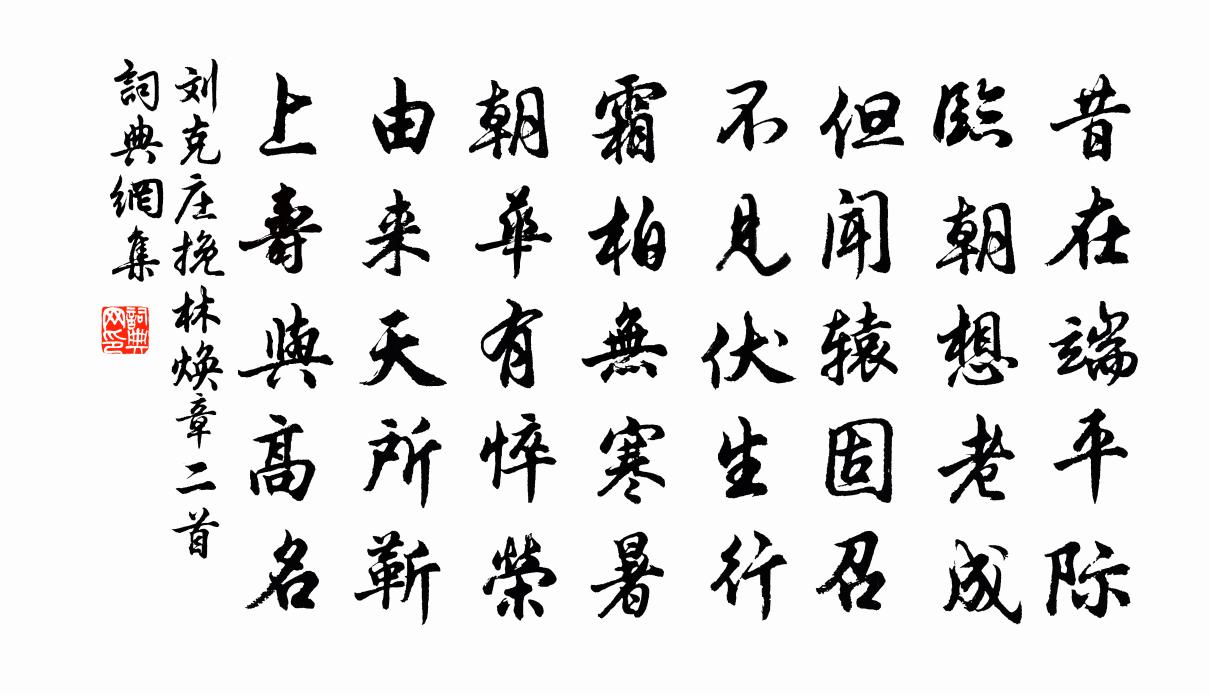 昔在端平际
臨朝想老成
但闻辕固召
不見伏生行
霜柏無寒暑
朝華有悴榮
由来天所靳
上壽與高名
刘克庄挽林焕章二首
詞典網集
詞典网印